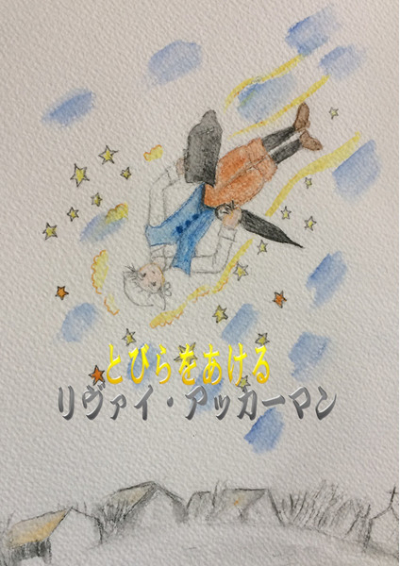 とびらをあける
リヴァイ・アッカーマン